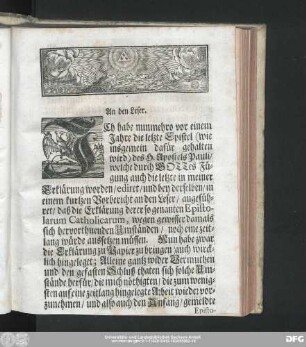 An den Leser.
ICh habe nunmehro vor einem
Jahre die letzte Epistel (wie
insgemein dafür gehalten
wird) des H. Apostels Pauli/
welche durch GOTTes Fü-
gung auch die letzte in meiner
Erklärung worden/ ediret/ und bey derselben/ in
einem kurtzen Vorbericht an den Leser/ angefüh-
ret/ daß die Erklärung derer so genanten Episto-
larum Catholicarum, wegen gewisser damals
sich hervorthuenden Umständen/ noch eine zeit-
lang würde aussetzen müssen. Nun habe zwar
die Erklärung zu Papier zu bringen/ auch würck-
lich hingeleget; Alleine gantz wider Vermuthen
und den gefasten Schluß thaten sich solche Um-
stände herfür/ die mich nöthigten/ die zum wenig-
sten auf eine zeitlang hingelegte Arbeit wieder vor-
zunehmen/ und also auch den Anfang/ gemeldte
Episto-